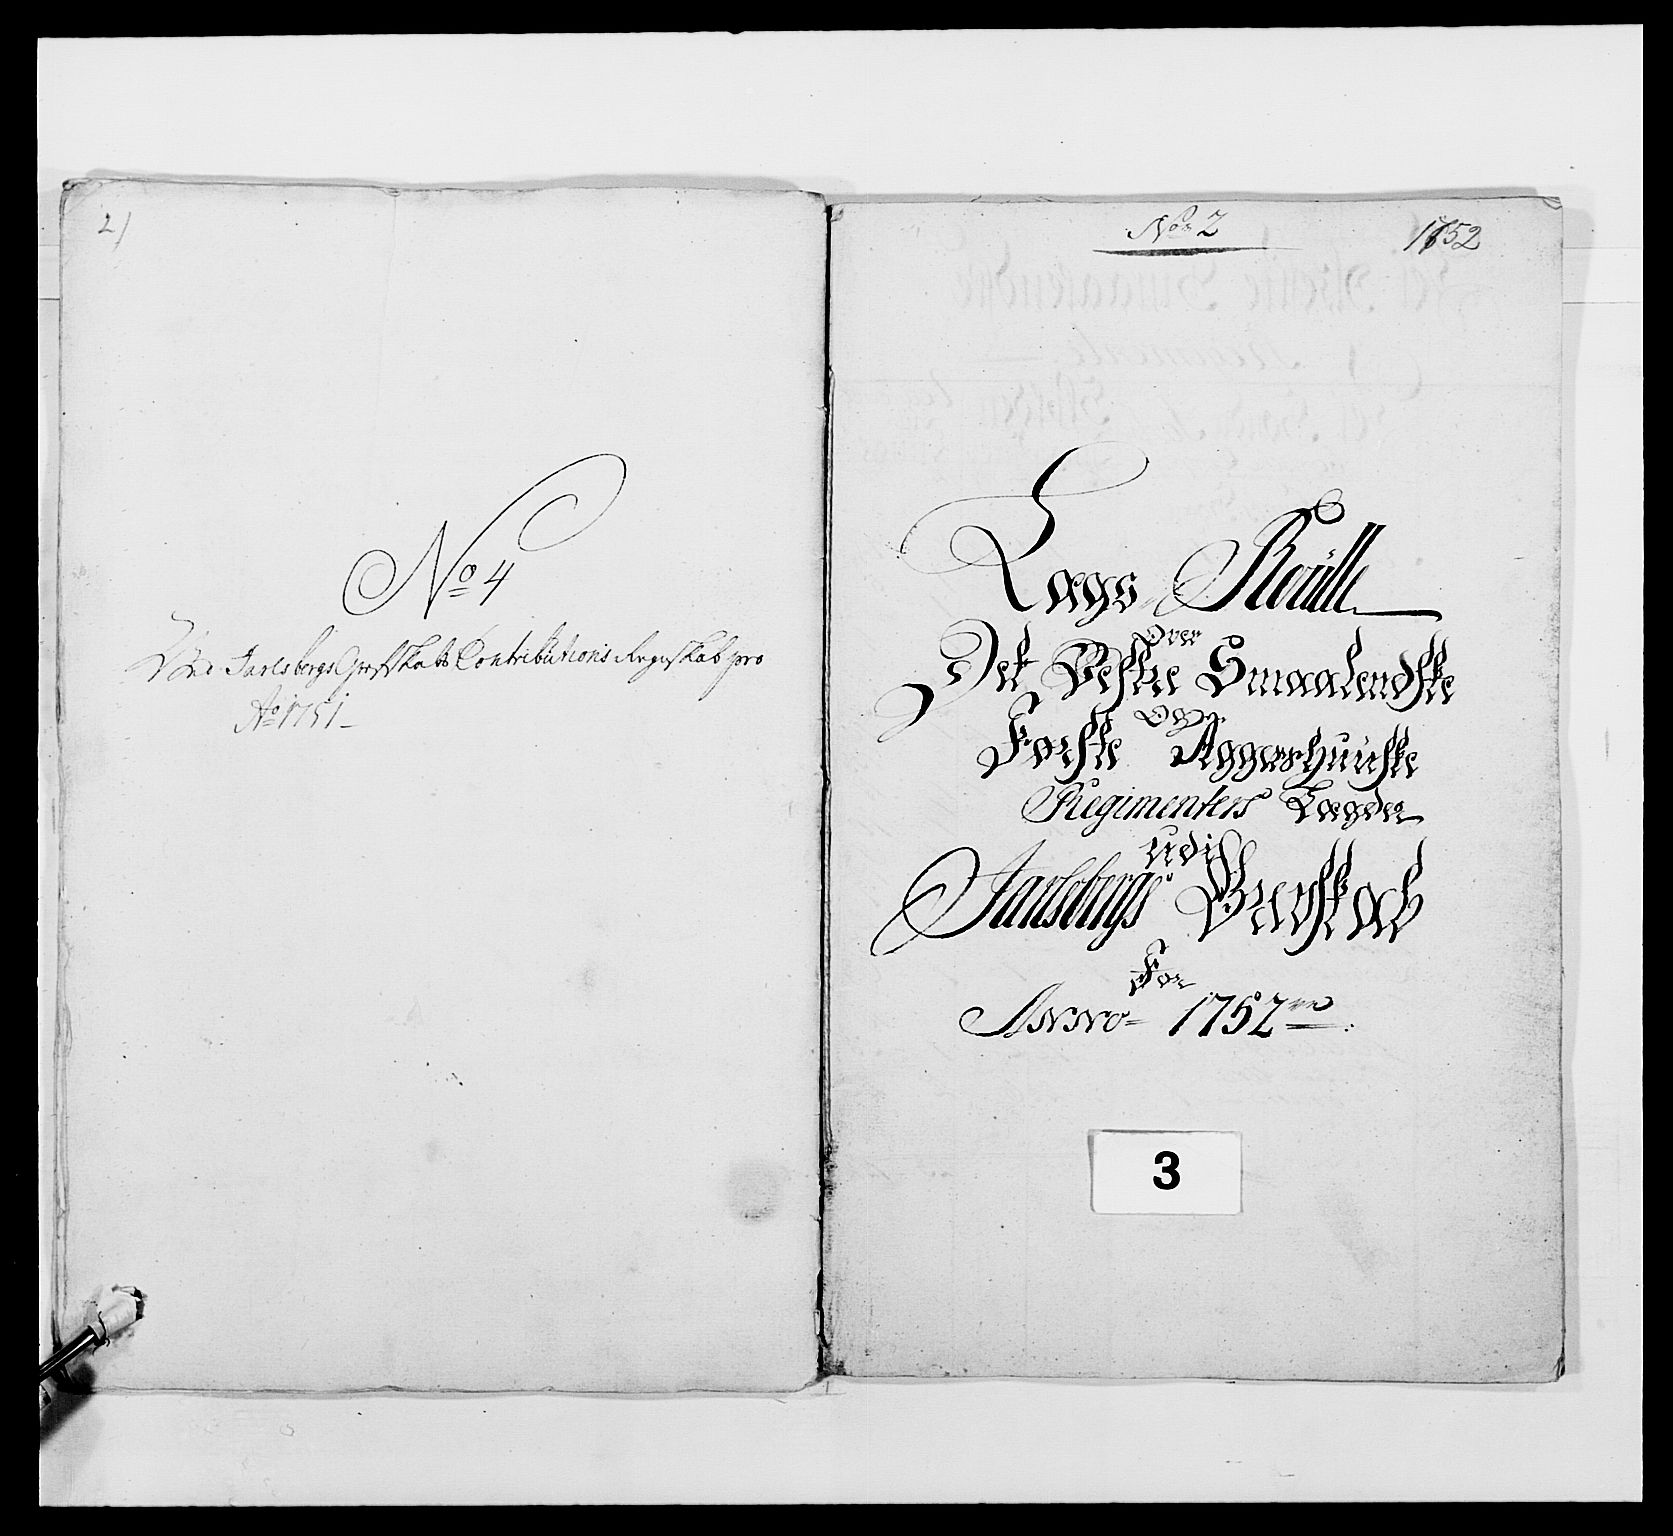 2)
No 4
Ved Jarlsbergs Grefskabs Contributions Regnskab pro
Ao 1751
No 2
1752
Lægs Roulle
Over
Det Vestre Smaalendske
Og
Første Aggershuuske
Regimenters Lægder
udi
Jarlsbergs Grefskab
For
Anno 1752
3